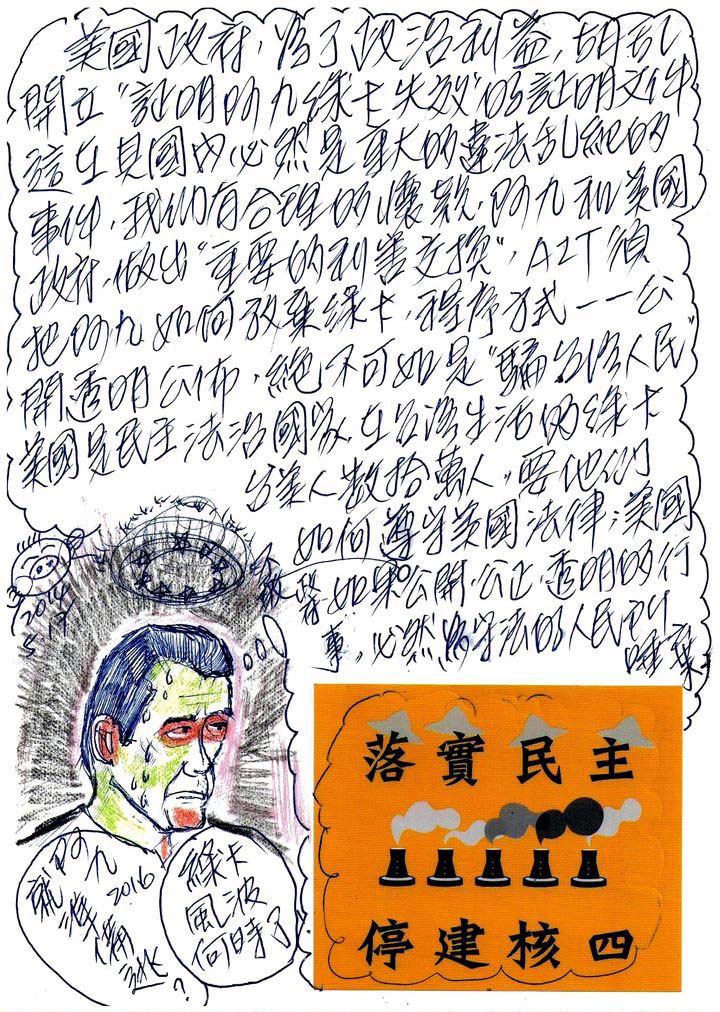 美國政府，為了政治利益，胡乱
開立"証明阿九綠卡失效"的証明文件
這在其國內必然是重大的違法乱紀的
事件，我們有合理的懷疑，阿九和美國
政府，做出"重要的利害交換"，AIT須
把阿九如何放棄綠卡，程序方式一一公
開透明公佈，絕不可如是"騙台灣人民"
美國是民主法治國家，在台灣生活的綠卡
台美人數拾萬人，要他們
如何遵守美國法律；美國
如果公開、公正、透明的行
事，必然為守法的人民所
唾棄
2014
5.17.
阿九
2016
就
逃
?
綠卡
風波
何時了
落實民主
停建核四